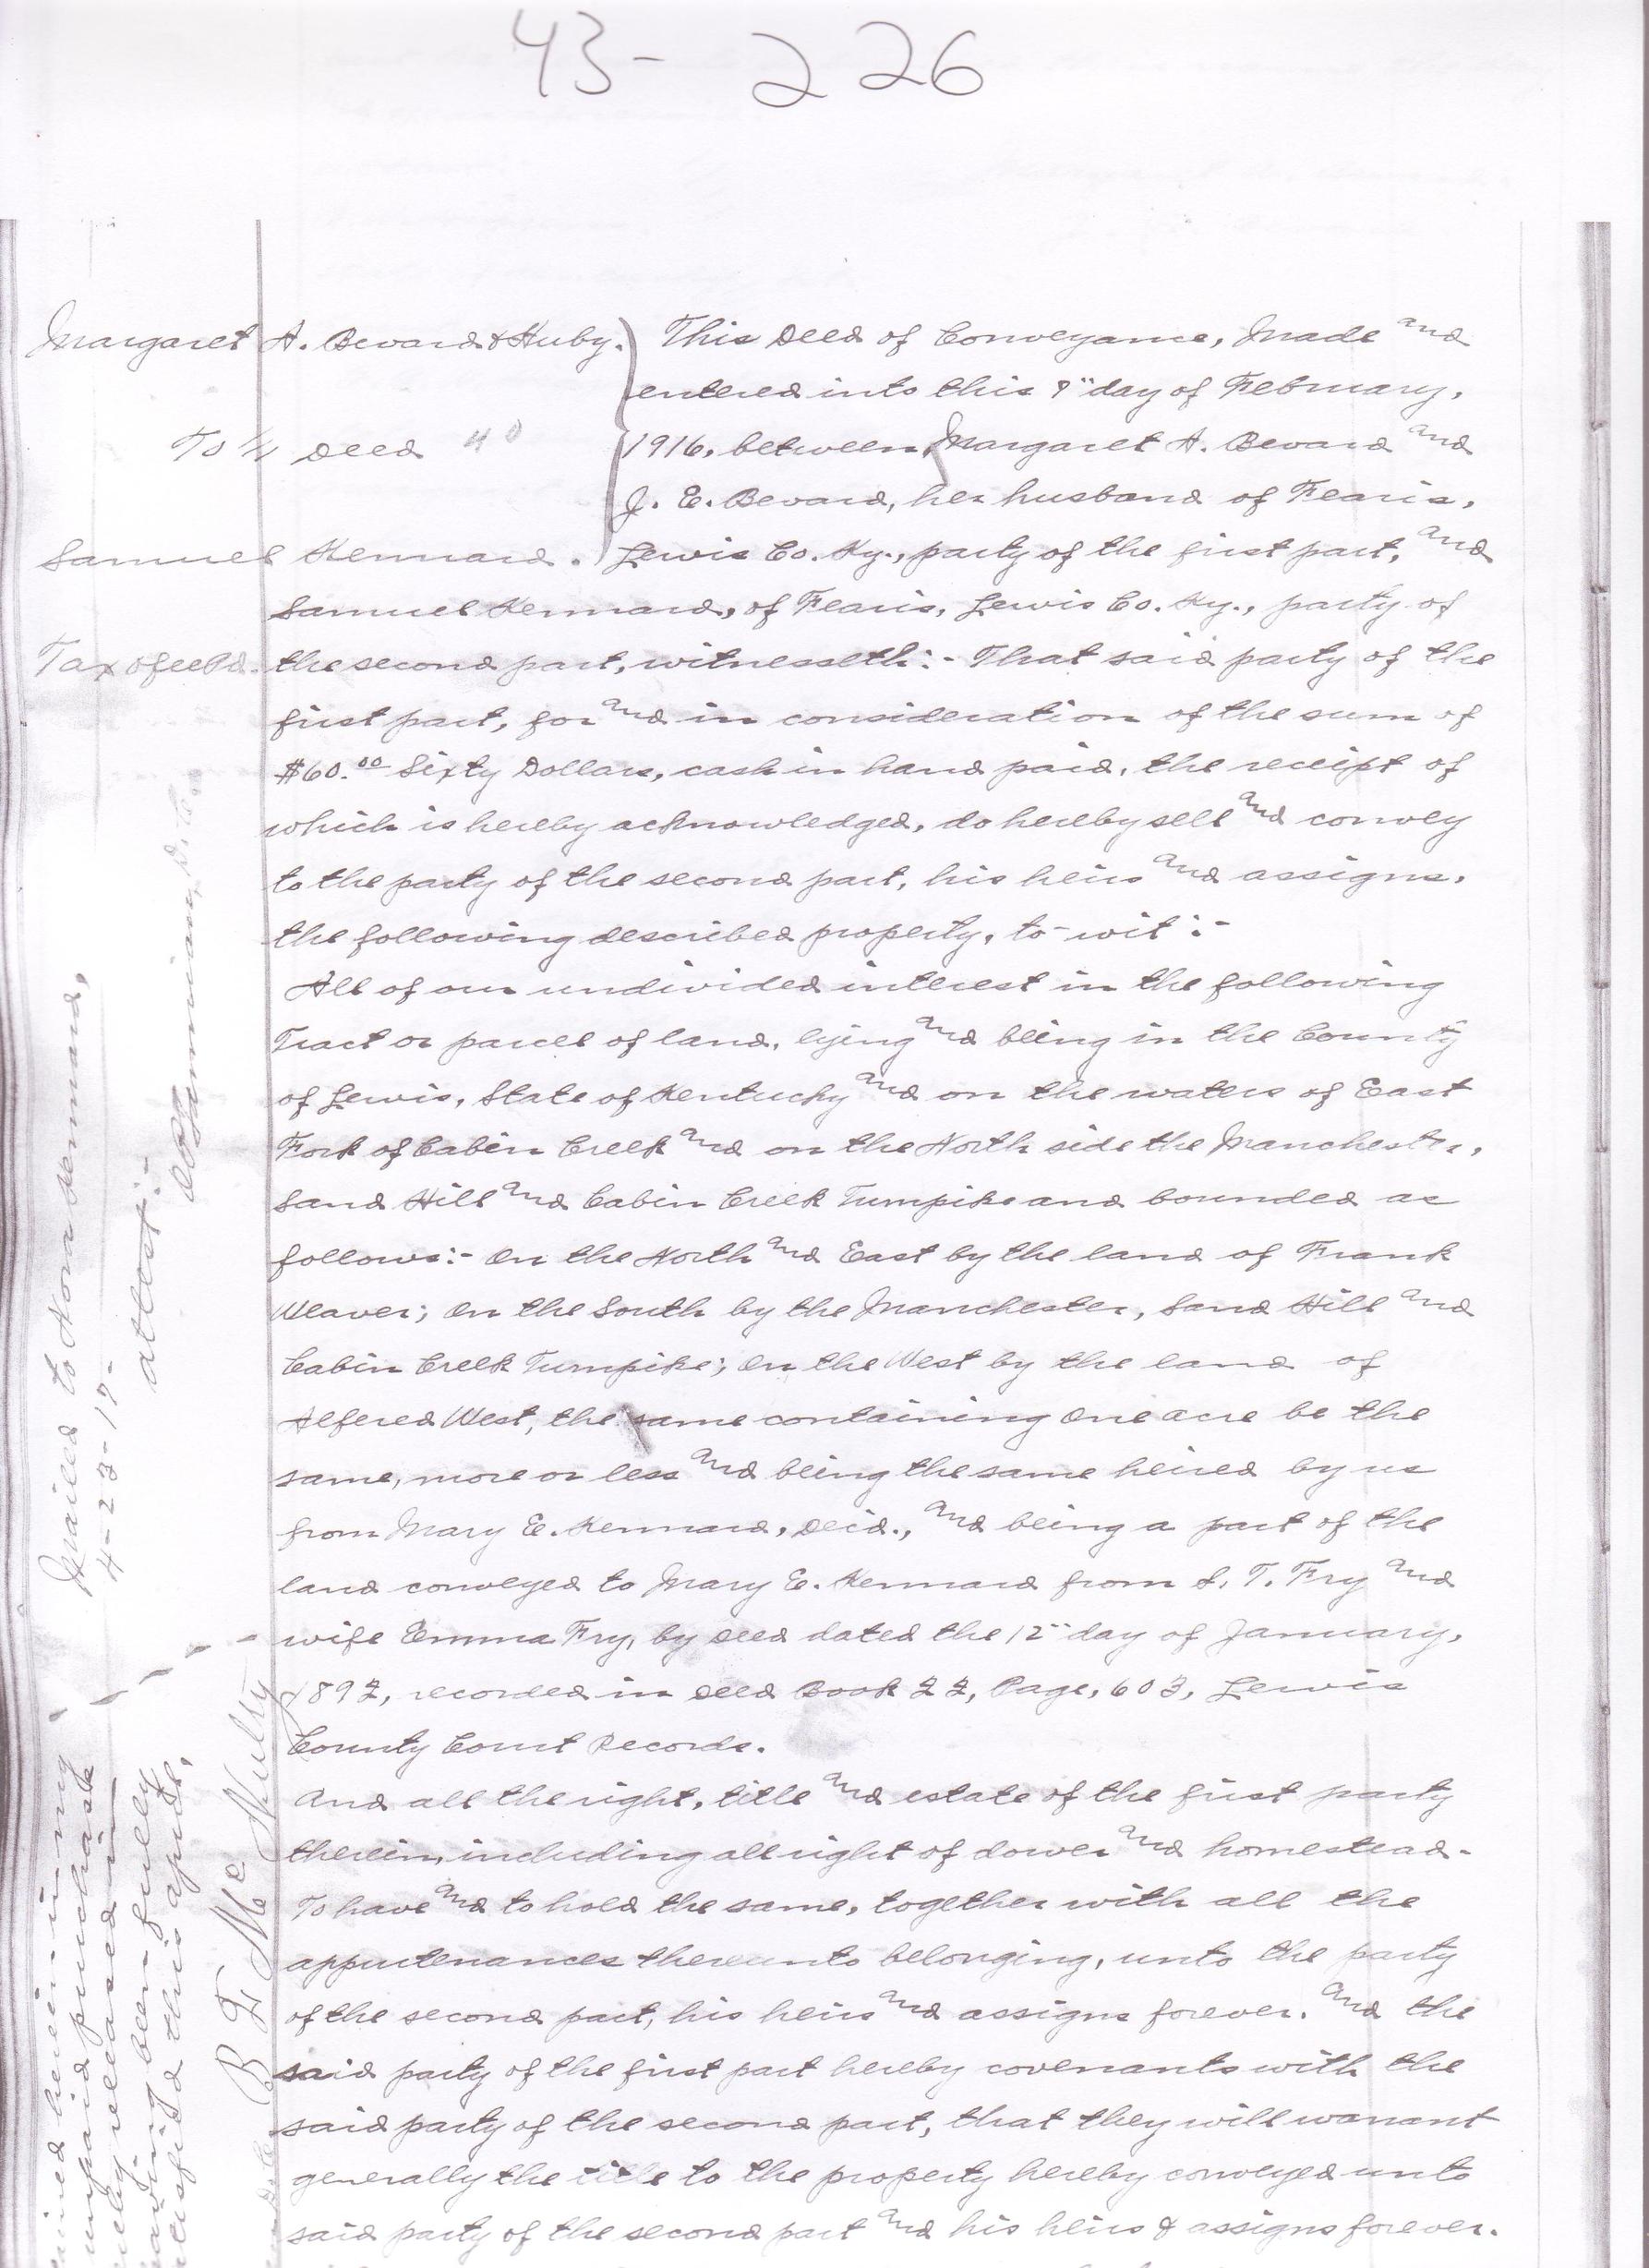 43- 226
Margaret A. Bevard & Husby.
To // Deed
Samuel Kennard.
Tax & fee Pd.
This Deed of Conveyance, Made and
entered into this 8" day of February,
1916, between Margaret A. Bevard and
J. E. Bevard, her husband of Fearis,
Lewis Co. Ky., party of the first part, and
Samuel Kennard, of Fearis, Lewis Co. Ky., party of
the second part, witnesseth:- That said party of the
first part, for and in consideration of the sum of
$60.00 Sixty Dollars, cash in hand paid, the receipt of
which is hereby acknowledged, do hereby sell and convey
to the party of the second part, his heirs and assigns,
the following described property, to-wit:-
All of our undivided interest in the following
Tract or parcel of land, lying and being in the County
of Lewis, State of Kentucky and on the waters of East
Fork of Cabin Creek and on the North side the Manchester,
Sand Hill and Cabin Creek Turnpike and bounded as
follows:- On the North and East by the land of Frank
Weaver; On the South by the Manchester, Sand Hill and
Cabin Creek Turnpike; On the West by the land of
Alfered West, the same containing One acre be the
same, more or less and being the same heired by us
from Mary E. Kennard, Decd., and being a part of the
land conveyed to Mary E. Kennard from S. T. Fry and
wife Emma Fry, by Deed dated the 12" day of January,
1892, recorded in Deed Book 22, Page, 603, Lewis
County Court Records.
And all the right, title and estate of the first party
therein, including all right of dower and homestead-
To have and to hold the same, together with all the
appurtenances thereunto belonging, unto the party
of the second part, his heirs and assigns forever. And the
said party of the first part hereby covenants with the
said party of the second part, that they will warrant
generally the title to the property hereby conveyed unto
said party of the second part and his heirs & assigns forever.
Mailed to Nora Kennard,
4-23-17-
attest:-
herein
unpaid purchase
released in
having been fully
satisfied this april,
B F McNulty